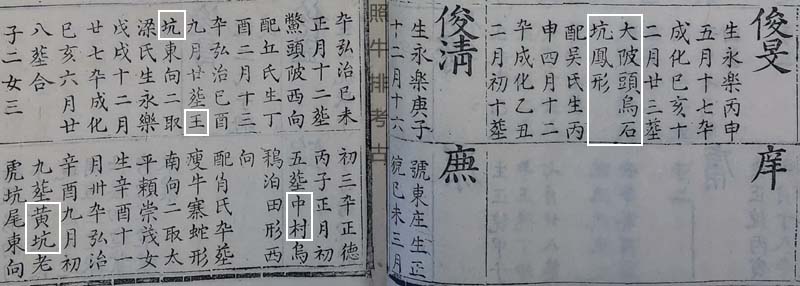 俊旻
生永樂丙申
五月十七卒
成化巳亥十
二月廿三塟
大陂頭烏石
坑鳳形
配吳氏生丙
申四月十二
卒成化乙丑
二月初十塟
俊淸
生永樂庚子
十二月十六
庠
號東庄生正
統巳未三月
照牛排考古
卒弘治巳未
正月十二塟
鱉頭陂西向
配丘氏生丁
酉二月十三
卒弘治巳酉
九月廿塟王
坑東向二取
梁氏生永樂
戊戌十二月
廿七卒成化
巳亥六月廿
八塟合
子二女三
初三卒正德
丙子正月初
五塟中村烏
鵶泊田形西
向
配肖氏卒塟
瘦牛寨蛇形
南向二取太
平賴崇茂女
生辛酉十一
月卅卒弘治
辛酉九月初
九塟黃坑老
虎坑尾東向